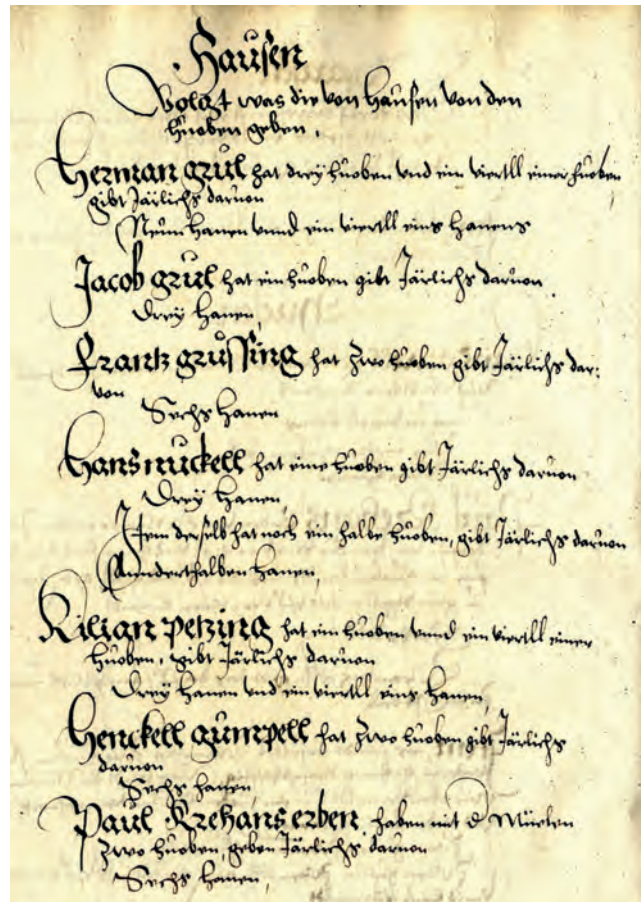 Hausen
Volgt was die von Hausen von den
huoben geben,
Herman grul hat drey huoben vnd ein viertll einer huoben
gibt Järlichs daruon
Neun hanen vnnd ein viertll eins hanens
Jacob grul hat ein huoben gibt Järlichs daruon
Drey hanen,
Frantz grussing hat zwo huoben gibt Järlichs dar:
von
Sechs hanen
Hans nuckell hat eine huoben gibt Järlichs daruon
Drey hanen,
Item derselb hat noch ein halbe huoben, gibt Järlichs daruon
Annderthalben hanen,
Kilian petzing hat ein huoben vnnd ein viertll einer
huoben, gibt Järlichs daruon
Drey hanen vnd ein viertll eins hanen,
Henckell gumpell hat zwo huoben gibt Järlichs
daruon
Sechs hanen
Paul Krehans erben, haben mit d Muelen
zwo huoben, geben Järlichs daruon
Sechs hanen,